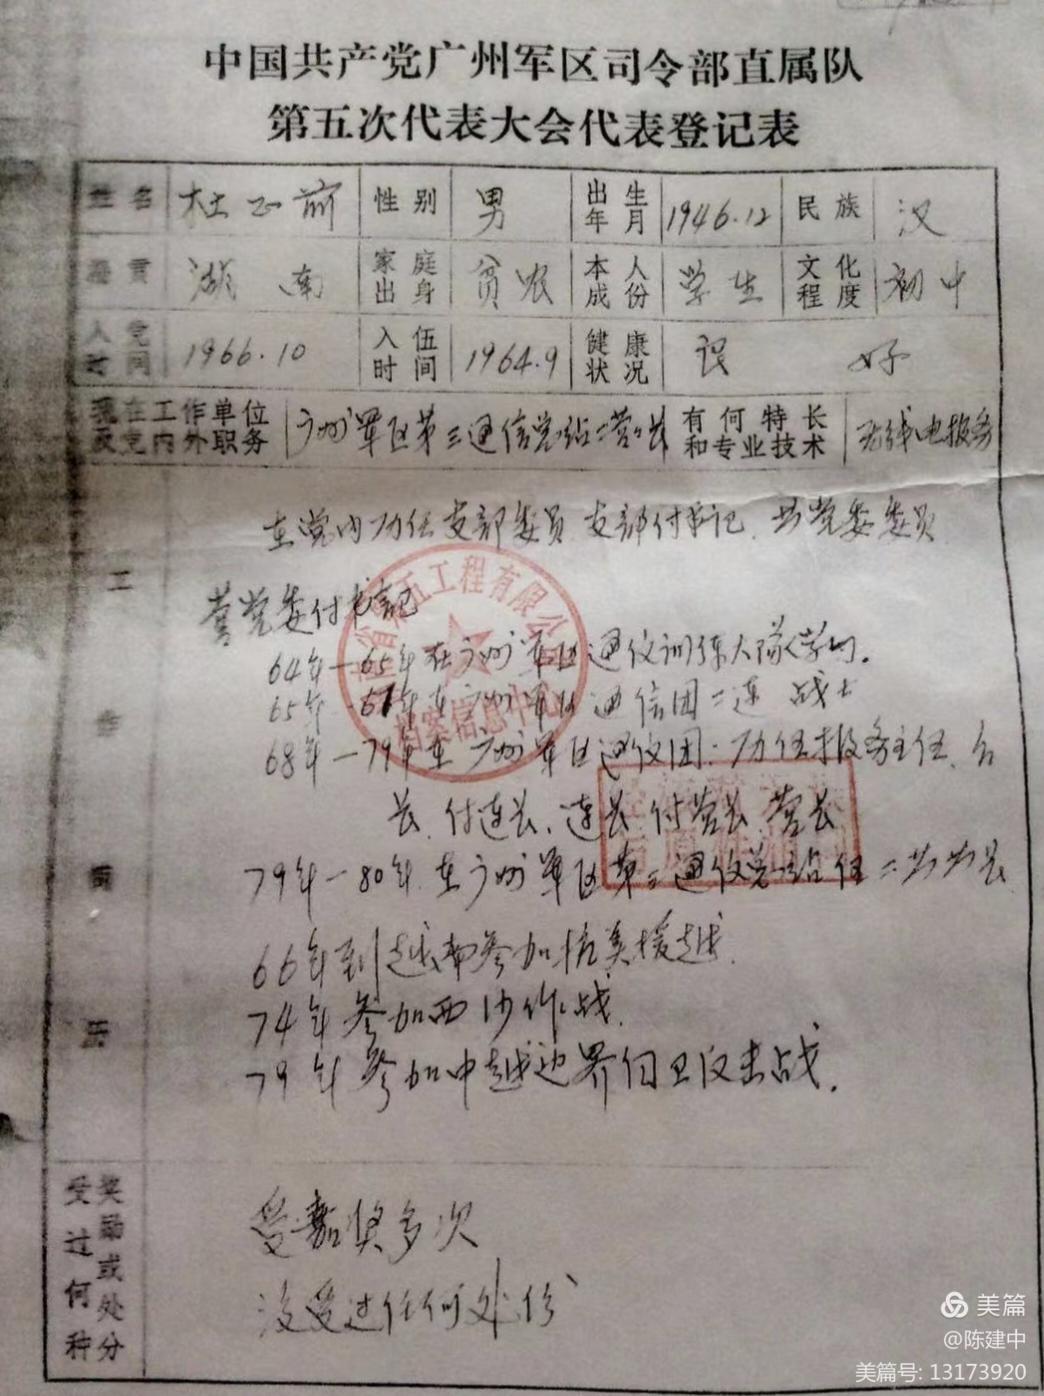 中国共产党广州军区司令部直属队
第五次代表大会代表登记表
姓名 杜正前 性别 男 出生年月 1946.12 民族 汉
籍贯 湖南 家庭出身 贫农 本人成份 学生 文化程度 初中
入党时间 1966.10 入伍时间 1964.9 健康状况 良好
现在工作单位及党内外职务 广州军区第三通信总站二营营长 有何特长和专业技术 无线电报务
工作简历
在党内历任支部委员 支部付书记 营党委委员
营党委付书记
64年—65年在广州军区通仪训练大队学习.
65年-67年在广州军区通信团二连 战士
68年—79年在广州军区通仪团.历任报务主任、台
长、付连长、连长、付营长、营长
79年—80年.在广州军区第三通仪总站任二营营长
66年到越南参加抗美援越.
74年参加西沙作战.
79年参加中越边界自卫反击战.
受过何种奖励或处分
受嘉奖多次
没受过任何处份
省 五工程有限公司
档案信息中心
美篇
@陈建中
美篇号: 13173920